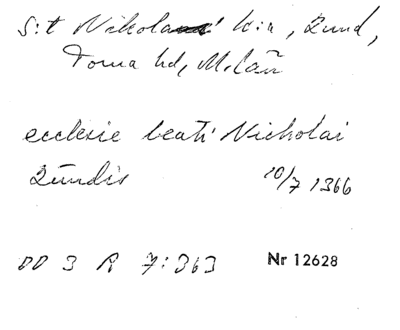 S:t Nikolai k:a, Lund,
Torna hd, Malm
ecclesie beati Nicholai
Lundis
10/7 1366
DD 3 R 7:363 Nr 12628